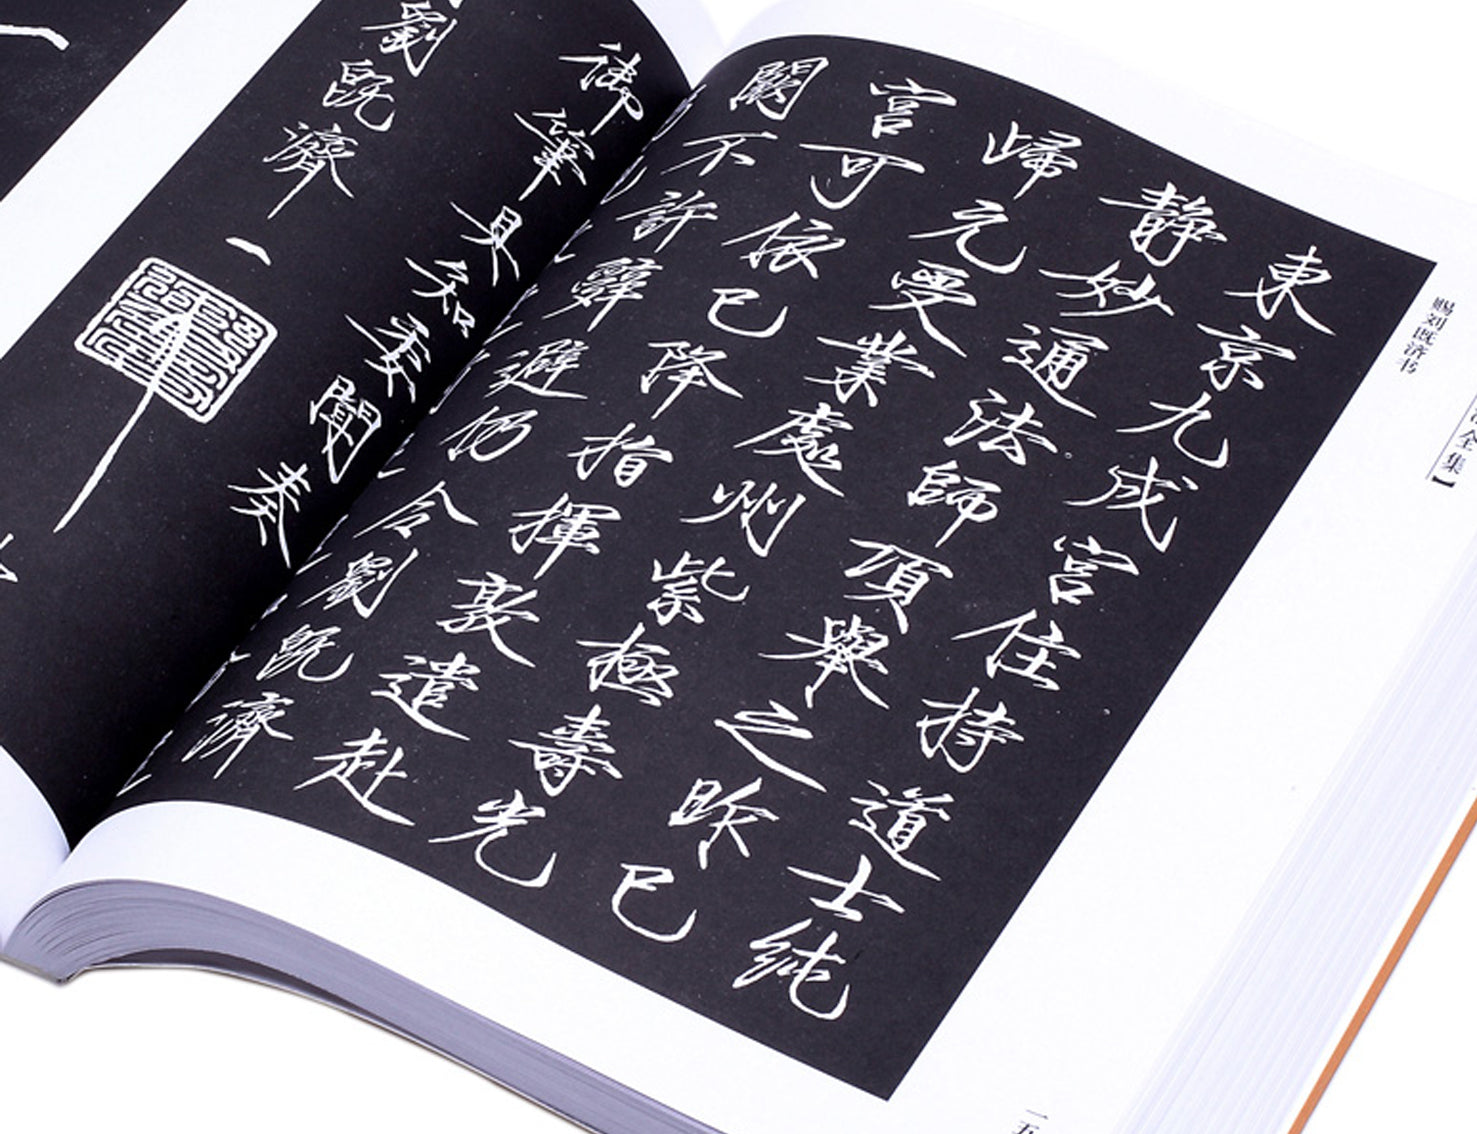 東京九成宮住持道士純
静妙通法師項舉之昨已
歸元受業處州紫極壽光
宮可依已降指揮敦遣赴
闕不許辭避仍令劉既濟
御筆具知委聞奏
劉既濟
全集】
赐刘既济书
一五